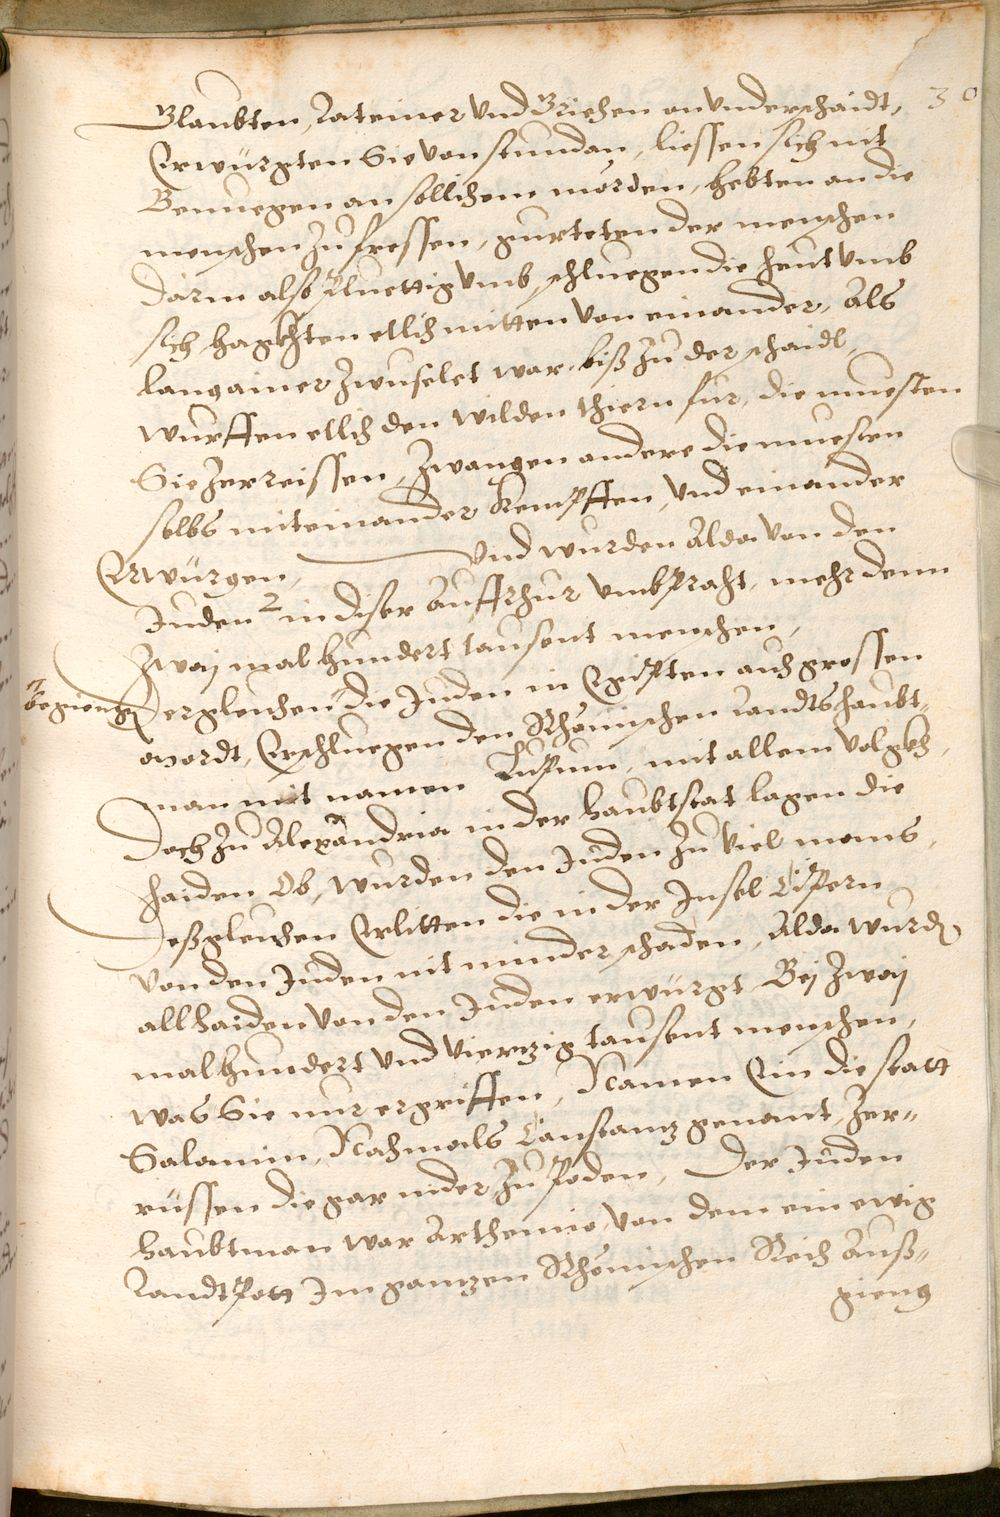 30
Glaubten, Lateiner vnd Griechen on vnderschaidt,
Erwürgten Sie von stundan, liessen sich nit
Benuegen an sollichem morden, hebten an die
menschen zu fressen, gurteten der menschen
därm also pluettig vmb, schluegen die heut vmb
sich hagkhten etlich mitten von einander, Als
lang ainer Zwuselet war, biß zu der schaidl,
wurffen etlich den wilden thiern für, die muesten
Sie Zerreissen, Zwangen andere die muesten
selbs miteinander Kempffen, vnd einander
Erwürgen, vnd wurden Alda von den
Juden 2 in diser Auffrhur vmbpracht, mehr denn
Zwaÿ mal hundert tausent menschen,
begiengen Dergleichen die Juden in Egipten auch grossen
mordt, Erschluegen den Rhömischen Landtshaubt-
man mit namen Lupum, mit allem volgkh,
Doch zu Alexandria in der haubtstat lagen die
haiden Ob, wurden den Juden zu viel mans,
Deßgleichen Erlitten die in der Insel Cipern
von den Juden nit minder schaden, Alda wurden
all haiden von den Juden erwürgt, Beÿ Zwaÿ
mal hundert vnd viertzig tausent menschen,
was Sie nur ergriffen, Namen Ein die statt
Salamin, Nachmals Constantz genant, Zer-
rüssen die gar nider zu poden, Der Juden
haubtman war Arthemio, von dem ein ewig
Landtpott Im gantzen Rhömischen Reich Auß-
gieng